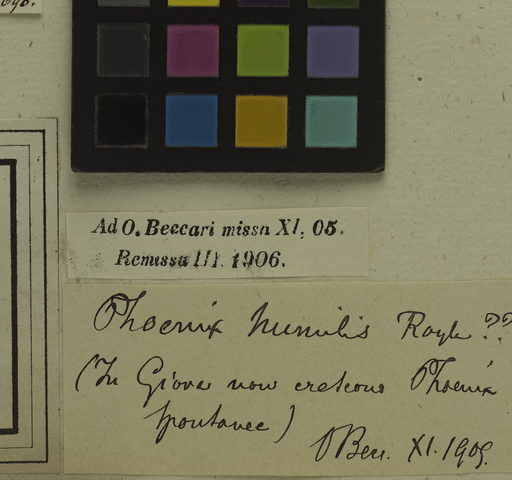 Ad O. Beccari missa XI. 05.
Remissa III. 1906.
Phoenix humilis Royle ??
(In Giava non crescono Phoenix
spontanee)
OBecc. XI. 1905.